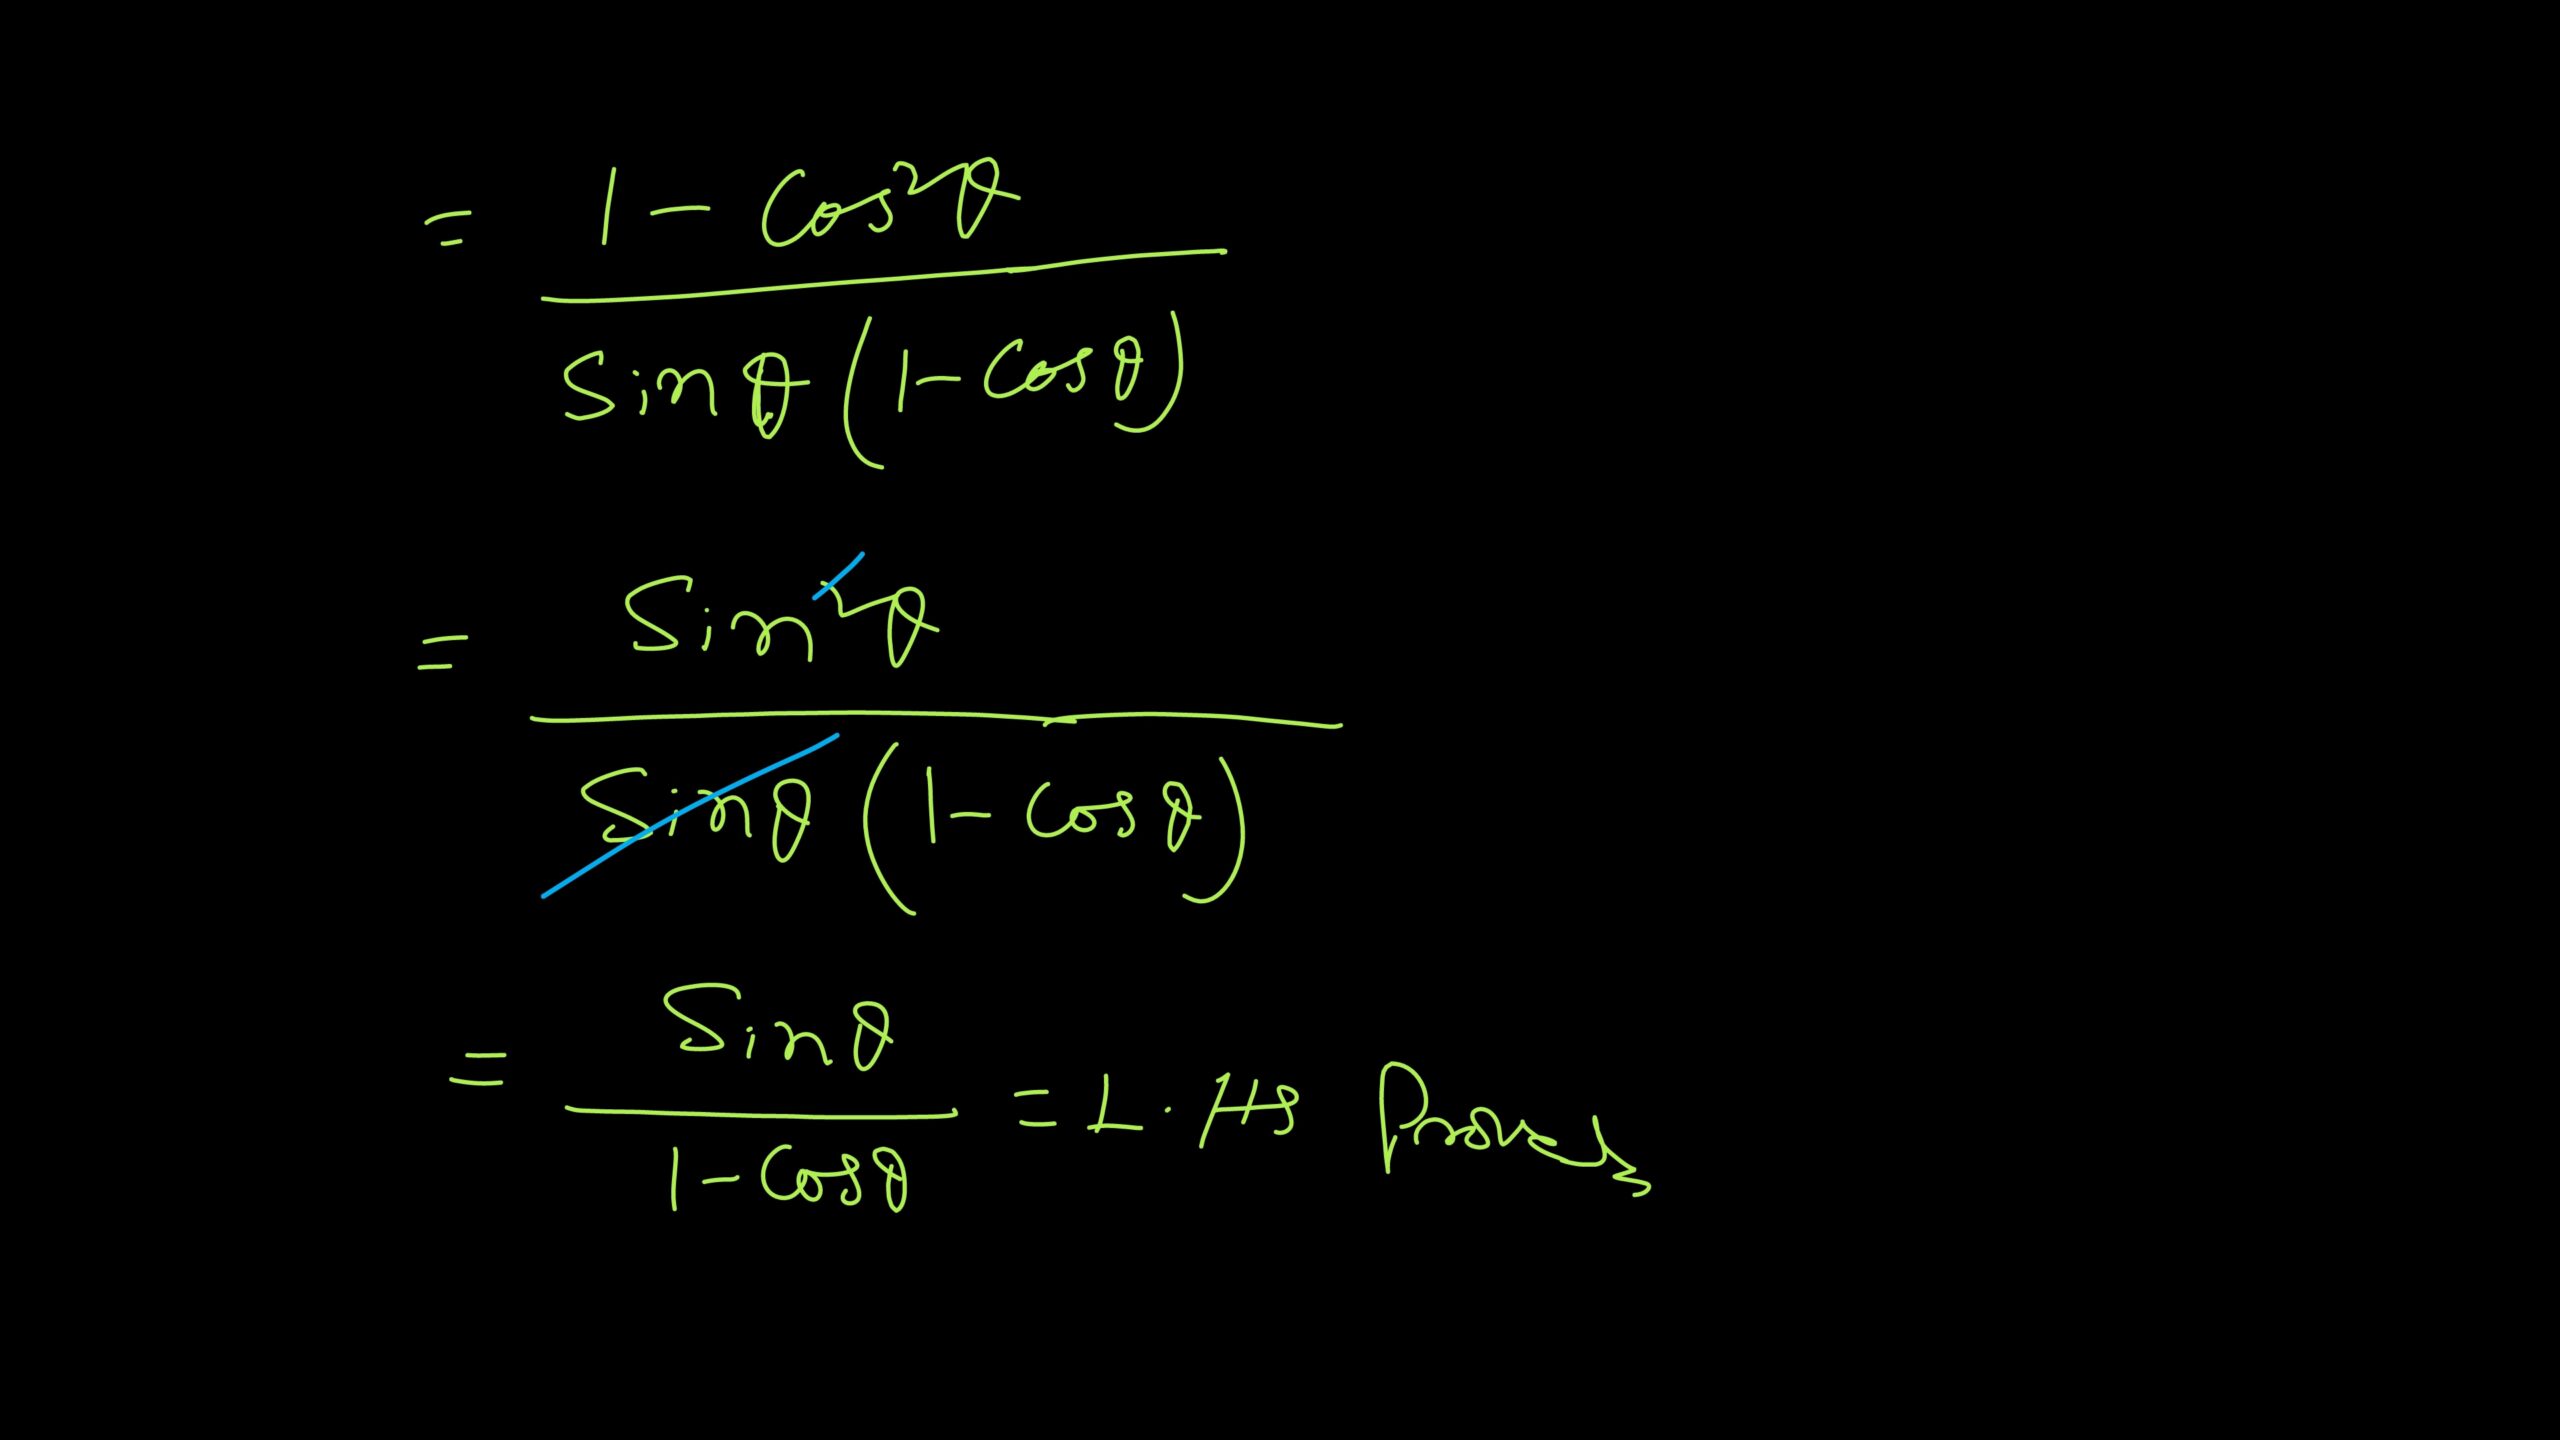 = 1 - Cos²θ
Sinθ (1 - Cosθ)
= Sin²θ
Sinθ (1 - Cosθ)
= Sinθ
1 - Cosθ
= L.Hs Proved